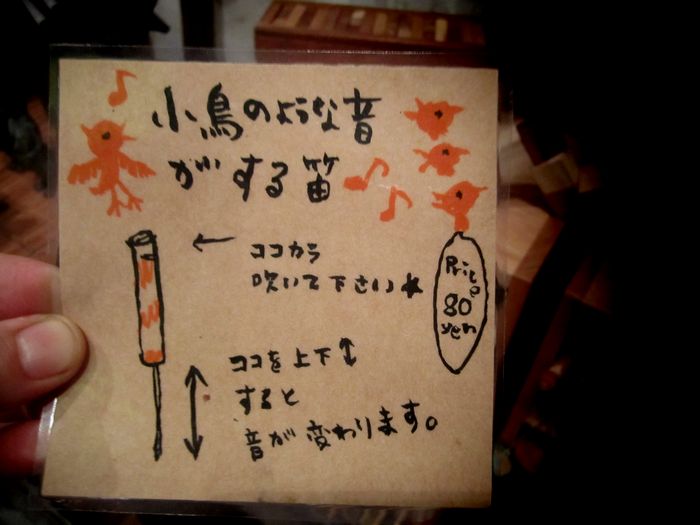 小鳥のような音
がする笛
ココカラ
吹いて下さい*
Price
80
yen
ココを上下↕
すると
音が変わります。